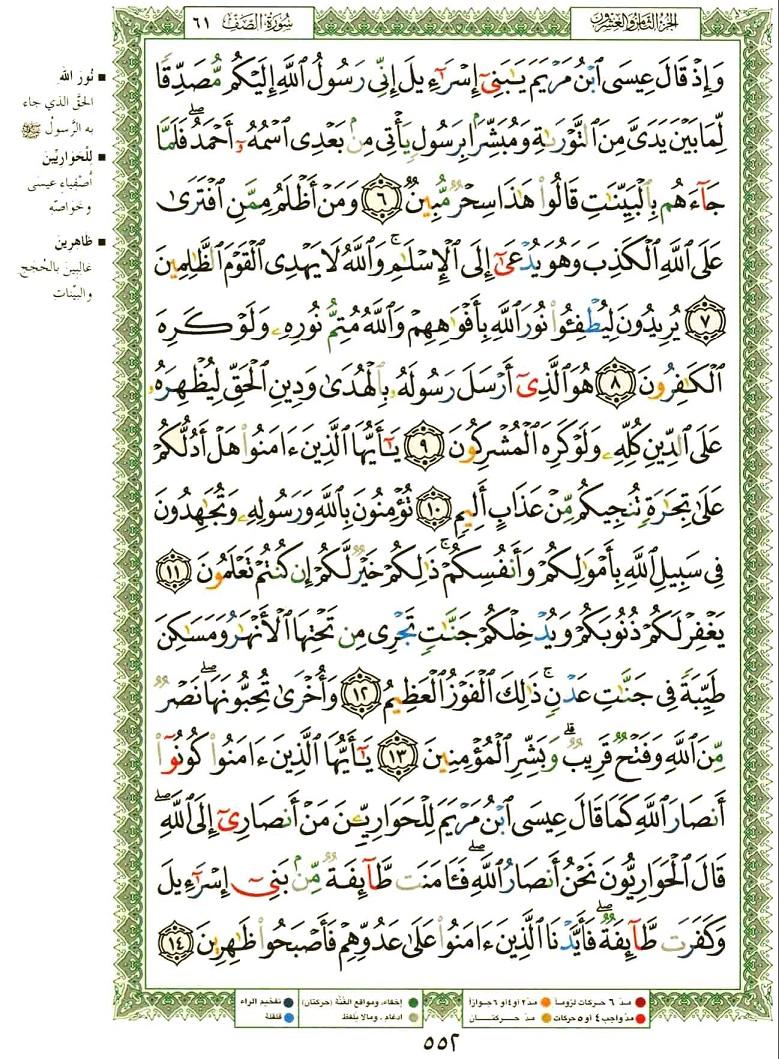 الجزء الثامن والعشرون
سورة الصف ٦١
وَإِذْ قَالَ عِيسَى ٱبْنُ مَرْيَمَ يَـٰبَنِىٓ إِسْرَٰٓءِيلَ إِنِّى رَسُولُ ٱللَّهِ إِلَيْكُم مُّصَدِّقًا
لِّمَا بَيْنَ يَدَىَّ مِنَ ٱلتَّوْرَىٰةِ وَمُبَشِّرًۢا بِرَسُولٍ يَأْتِى مِنۢ بَعْدِى ٱسْمُهُۥٓ أَحْمَدُ ۖ فَلَمَّا
جَآءَهُم بِٱلْبَيِّنَـٰتِ قَالُوا۟ هَـٰذَا سِحْرٌ مُّبِينٌ ٦ وَمَنْ أَظْلَمُ مِمَّنِ ٱفْتَرَىٰ
عَلَى ٱللَّهِ ٱلْكَذِبَ وَهُوَ يُدْعَىٰٓ إِلَى ٱلْإِسْلَـٰمِ ۚ وَٱللَّهُ لَا يَهْدِى ٱلْقَوْمَ ٱلظَّـٰلِمِينَ
٧ يُرِيدُونَ لِيُطْفِـُٔوا۟ نُورَ ٱللَّهِ بِأَفْوَٰهِهِمْ وَٱللَّهُ مُتِمُّ نُورِهِۦ وَلَوْ كَرِهَ
ٱلْكَـٰفِرُونَ ٨ هُوَ ٱلَّذِىٓ أَرْسَلَ رَسُولَهُۥ بِٱلْهُدَىٰ وَدِينِ ٱلْحَقِّ لِيُظْهِرَهُۥ
عَلَى ٱلدِّينِ كُلِّهِۦ وَلَوْ كَرِهَ ٱلْمُشْرِكُونَ ٩ يَـٰٓأَيُّهَا ٱلَّذِينَ ءَامَنُوا۟ هَلْ أَدُلُّكُمْ
عَلَىٰ تِجَـٰرَةٍ تُنجِيكُم مِّنْ عَذَابٍ أَلِيمٍ ١٠ تُؤْمِنُونَ بِٱللَّهِ وَرَسُولِهِۦ وَتُجَـٰهِدُونَ
فِى سَبِيلِ ٱللَّهِ بِأَمْوَٰلِكُمْ وَأَنفُسِكُمْ ۚ ذَٰلِكُمْ خَيْرٌ لَّكُمْ إِن كُنتُمْ تَعْلَمُونَ ١١
يَغْفِرْ لَكُمْ ذُنُوبَكُمْ وَيُدْخِلْكُمْ جَنَّـٰتٍ تَجْرِى مِن تَحْتِهَا ٱلْأَنْهَـٰرُ وَمَسَـٰكِنَ
طَيِّبَةً فِى جَنَّـٰتِ عَدْنٍ ۚ ذَٰلِكَ ٱلْفَوْزُ ٱلْعَظِيمُ ١٢ وَأُخْرَىٰ تُحِبُّونَهَا ۖ نَصْرٌ
مِّنَ ٱللَّهِ وَفَتْحٌ قَرِيبٌ ۗ وَبَشِّرِ ٱلْمُؤْمِنِينَ ١٣ يَـٰٓأَيُّهَا ٱلَّذِينَ ءَامَنُوا۟ كُونُوٓا۟
أَنصَارَ ٱللَّهِ كَمَا قَالَ عِيسَى ٱبْنُ مَرْيَمَ لِلْحَوَارِيِّـۧنَ مَنْ أَنصَارِىٓ إِلَى ٱللَّهِ ۖ
قَالَ ٱلْحَوَارِيُّونَ نَحْنُ أَنصَارُ ٱللَّهِ ۖ فَـَٔامَنَت طَّآئِفَةٌ مِّنۢ بَنِىٓ إِسْرَٰٓءِيلَ
وَكَفَرَت طَّآئِفَةٌ ۖ فَأَيَّدْنَا ٱلَّذِينَ ءَامَنُوا۟ عَلَىٰ عَدُوِّهِمْ فَأَصْبَحُوا۟ ظَـٰهِرِينَ ١٤
■ نُورَ الله
الحَقَّ الذي جاء
به الرَّسولُ ﷺ
■ لِلْحَوَارِيِّينَ
أصْفِياءِ عيسى
وخَوَاصِّه
■ ظاهِرين
غالِبينَ بالحُجَج
والبَيِّنات
مدّ ٦ حركات لزوماً
مدّ ٢ أو ٤ أو ٦ جوازاً
إخفاء، ومواقع الغُنَّة (حركتان)
تفخيم الراء
مدّ واجب ٤ أو ٥ حركات
مدّ حركتان
إدغام، وما لا يُلفظ
قلقلة
٥٥٢